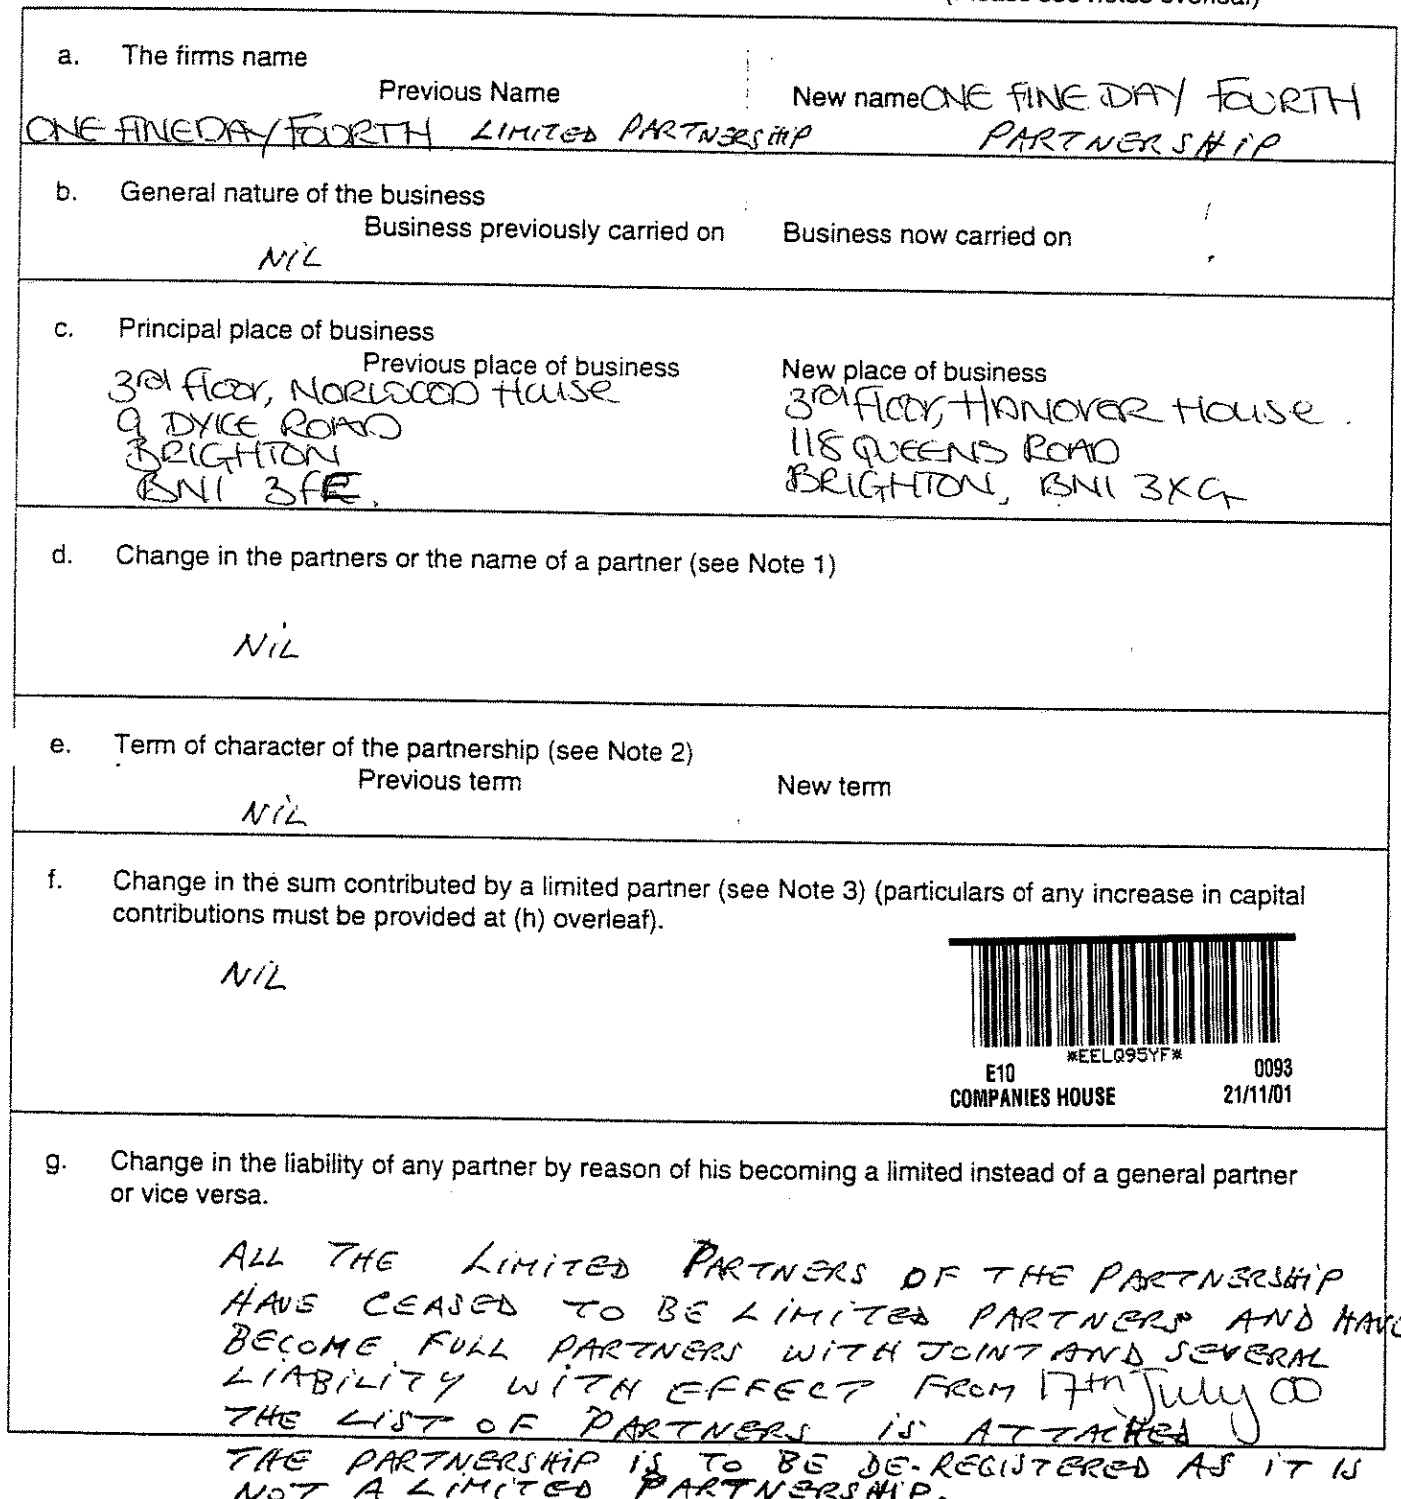 a. The firms name
Previous Name
New name ONE FINE DAY FOURTH
ONE FINE DAY FOURTH LIMITED PARTNERSHIP
PARTNERSHIP
b. General nature of the business
Business previously carried on
Business now carried on
NIL
c. Principal place of business
Previous place of business
3rd floor, NORWOOD House
9 DYKE ROAD
BRIGHTON
BN1 3FE.
New place of business
3rd Floor, HANOVER House.
118 QUEENS ROAD
BRIGHTON, BN1 3XG
d. Change in the partners or the name of a partner (see Note 1)
NIL
e. Term of character of the partnership (see Note 2)
Previous term
New term
NIL
f. Change in the sum contributed by a limited partner (see Note 3) (particulars of any increase in capital
contributions must be provided at (h) overleaf).
NIL
*EELQ95YF*
E10 0093
COMPANIES HOUSE 21/11/01
g. Change in the liability of any partner by reason of his becoming a limited instead of a general partner
or vice versa.
ALL THE LIMITED PARTNERS OF THE PARTNERSHIP
HAVE CEASED TO BE LIMITED PARTNERS AND HAVE
BECOME FULL PARTNERS WITH JOINT AND SEVERAL
LIABILITY WITH EFFECT FROM 17th July 00
THE LIST OF PARTNERS IS ATTACHED
THE PARTNERSHIP IS TO BE DE-REGISTERED AS IT IS
NOT A LIMITED PARTNERSHIP.